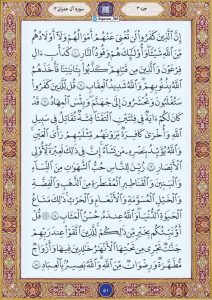 جزء ۳
سورة آل عمران ۳
إِنَّ الَّذِينَ كَفَرُوا لَن تُغْنِيَ عَنْهُمْ أَمْوَالُهُمْ وَلَا أَوْلَادُهُم
مِّنَ اللَّهِ شَيْئًا وَأُولَٰئِكَ هُمْ وَقُودُ النَّارِ ۝١٠ كَدَأْبِ آلِ
فِرْعَوْنَ وَالَّذِينَ مِن قَبْلِهِمْ كَذَّبُوا بِآيَاتِنَا فَأَخَذَهُمُ
اللَّهُ بِذُنُوبِهِمْ وَاللَّهُ شَدِيدُ الْعِقَابِ ۝١١ قُل لِّلَّذِينَ كَفَرُوا
سَتُغْلَبُونَ وَتُحْشَرُونَ إِلَىٰ جَهَنَّمَ وَبِئْسَ الْمِهَادُ ۝١٢ قَدْ
كَانَ لَكُمْ آيَةٌ فِي فِئَتَيْنِ الْتَقَتَا فِئَةٌ تُقَاتِلُ فِي سَبِيلِ
اللَّهِ وَأُخْرَىٰ كَافِرَةٌ يَرَوْنَهُم مِّثْلَيْهِمْ رَأْيَ الْعَيْنِ
وَاللَّهُ يُؤَيِّدُ بِنَصْرِهِ مَن يَشَاءُ إِنَّ فِي ذَٰلِكَ لَعِبْرَةً لِّأُولِي
الْأَبْصَارِ ۝١٣ زُيِّنَ لِلنَّاسِ حُبُّ الشَّهَوَاتِ مِنَ النِّسَاءِ
وَالْبَنِينَ وَالْقَنَاطِيرِ الْمُقَنطَرَةِ مِنَ الذَّهَبِ وَالْفِضَّةِ
وَالْخَيْلِ الْمُسَوَّمَةِ وَالْأَنْعَامِ وَالْحَرْثِ ذَٰلِكَ مَتَاعُ
الْحَيَاةِ الدُّنْيَا وَاللَّهُ عِندَهُ حُسْنُ الْمَآبِ ۝١٤ قُلْ
أَؤُنَبِّئُكُم بِخَيْرٍ مِّن ذَٰلِكُمْ لِلَّذِينَ اتَّقَوْا عِندَ رَبِّهِمْ
جَنَّاتٌ تَجْرِي مِن تَحْتِهَا الْأَنْهَارُ خَالِدِينَ فِيهَا وَأَزْوَاجٌ
مُّطَهَّرَةٌ وَرِضْوَانٌ مِّنَ اللَّهِ وَاللَّهُ بَصِيرٌ بِالْعِبَادِ ۝١٥
٥١